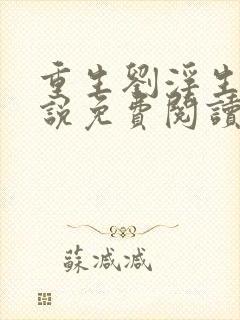 重生劉淫生
說免費閱讀
蘇減減